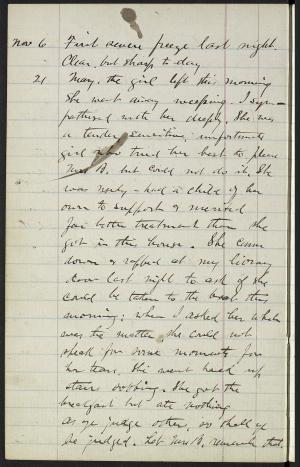 Nov 6 First severe freeze last night.
Clear, but sharp to day
21 Mary, the girl left this morning
She went away weeping. I sym-
pathized with her deeply. She was
a tender sensitive, unfortunate
girl who tried her best to please
Mrs B. but could not do it. She
was needy - had a child of her
own to support & merited
far better treatment than she
got in this house. She came
down & rapped at my library
door last night to ask if she
could be taken to the boat this
morning; when I asked her what
was the matter she could not
speak for some moments for
her tears. She went back up
stairs sobbing. She got the
breakfast but ate nothing
as ye judge others, so shall ye
be judged. Let Mrs B. remember that.